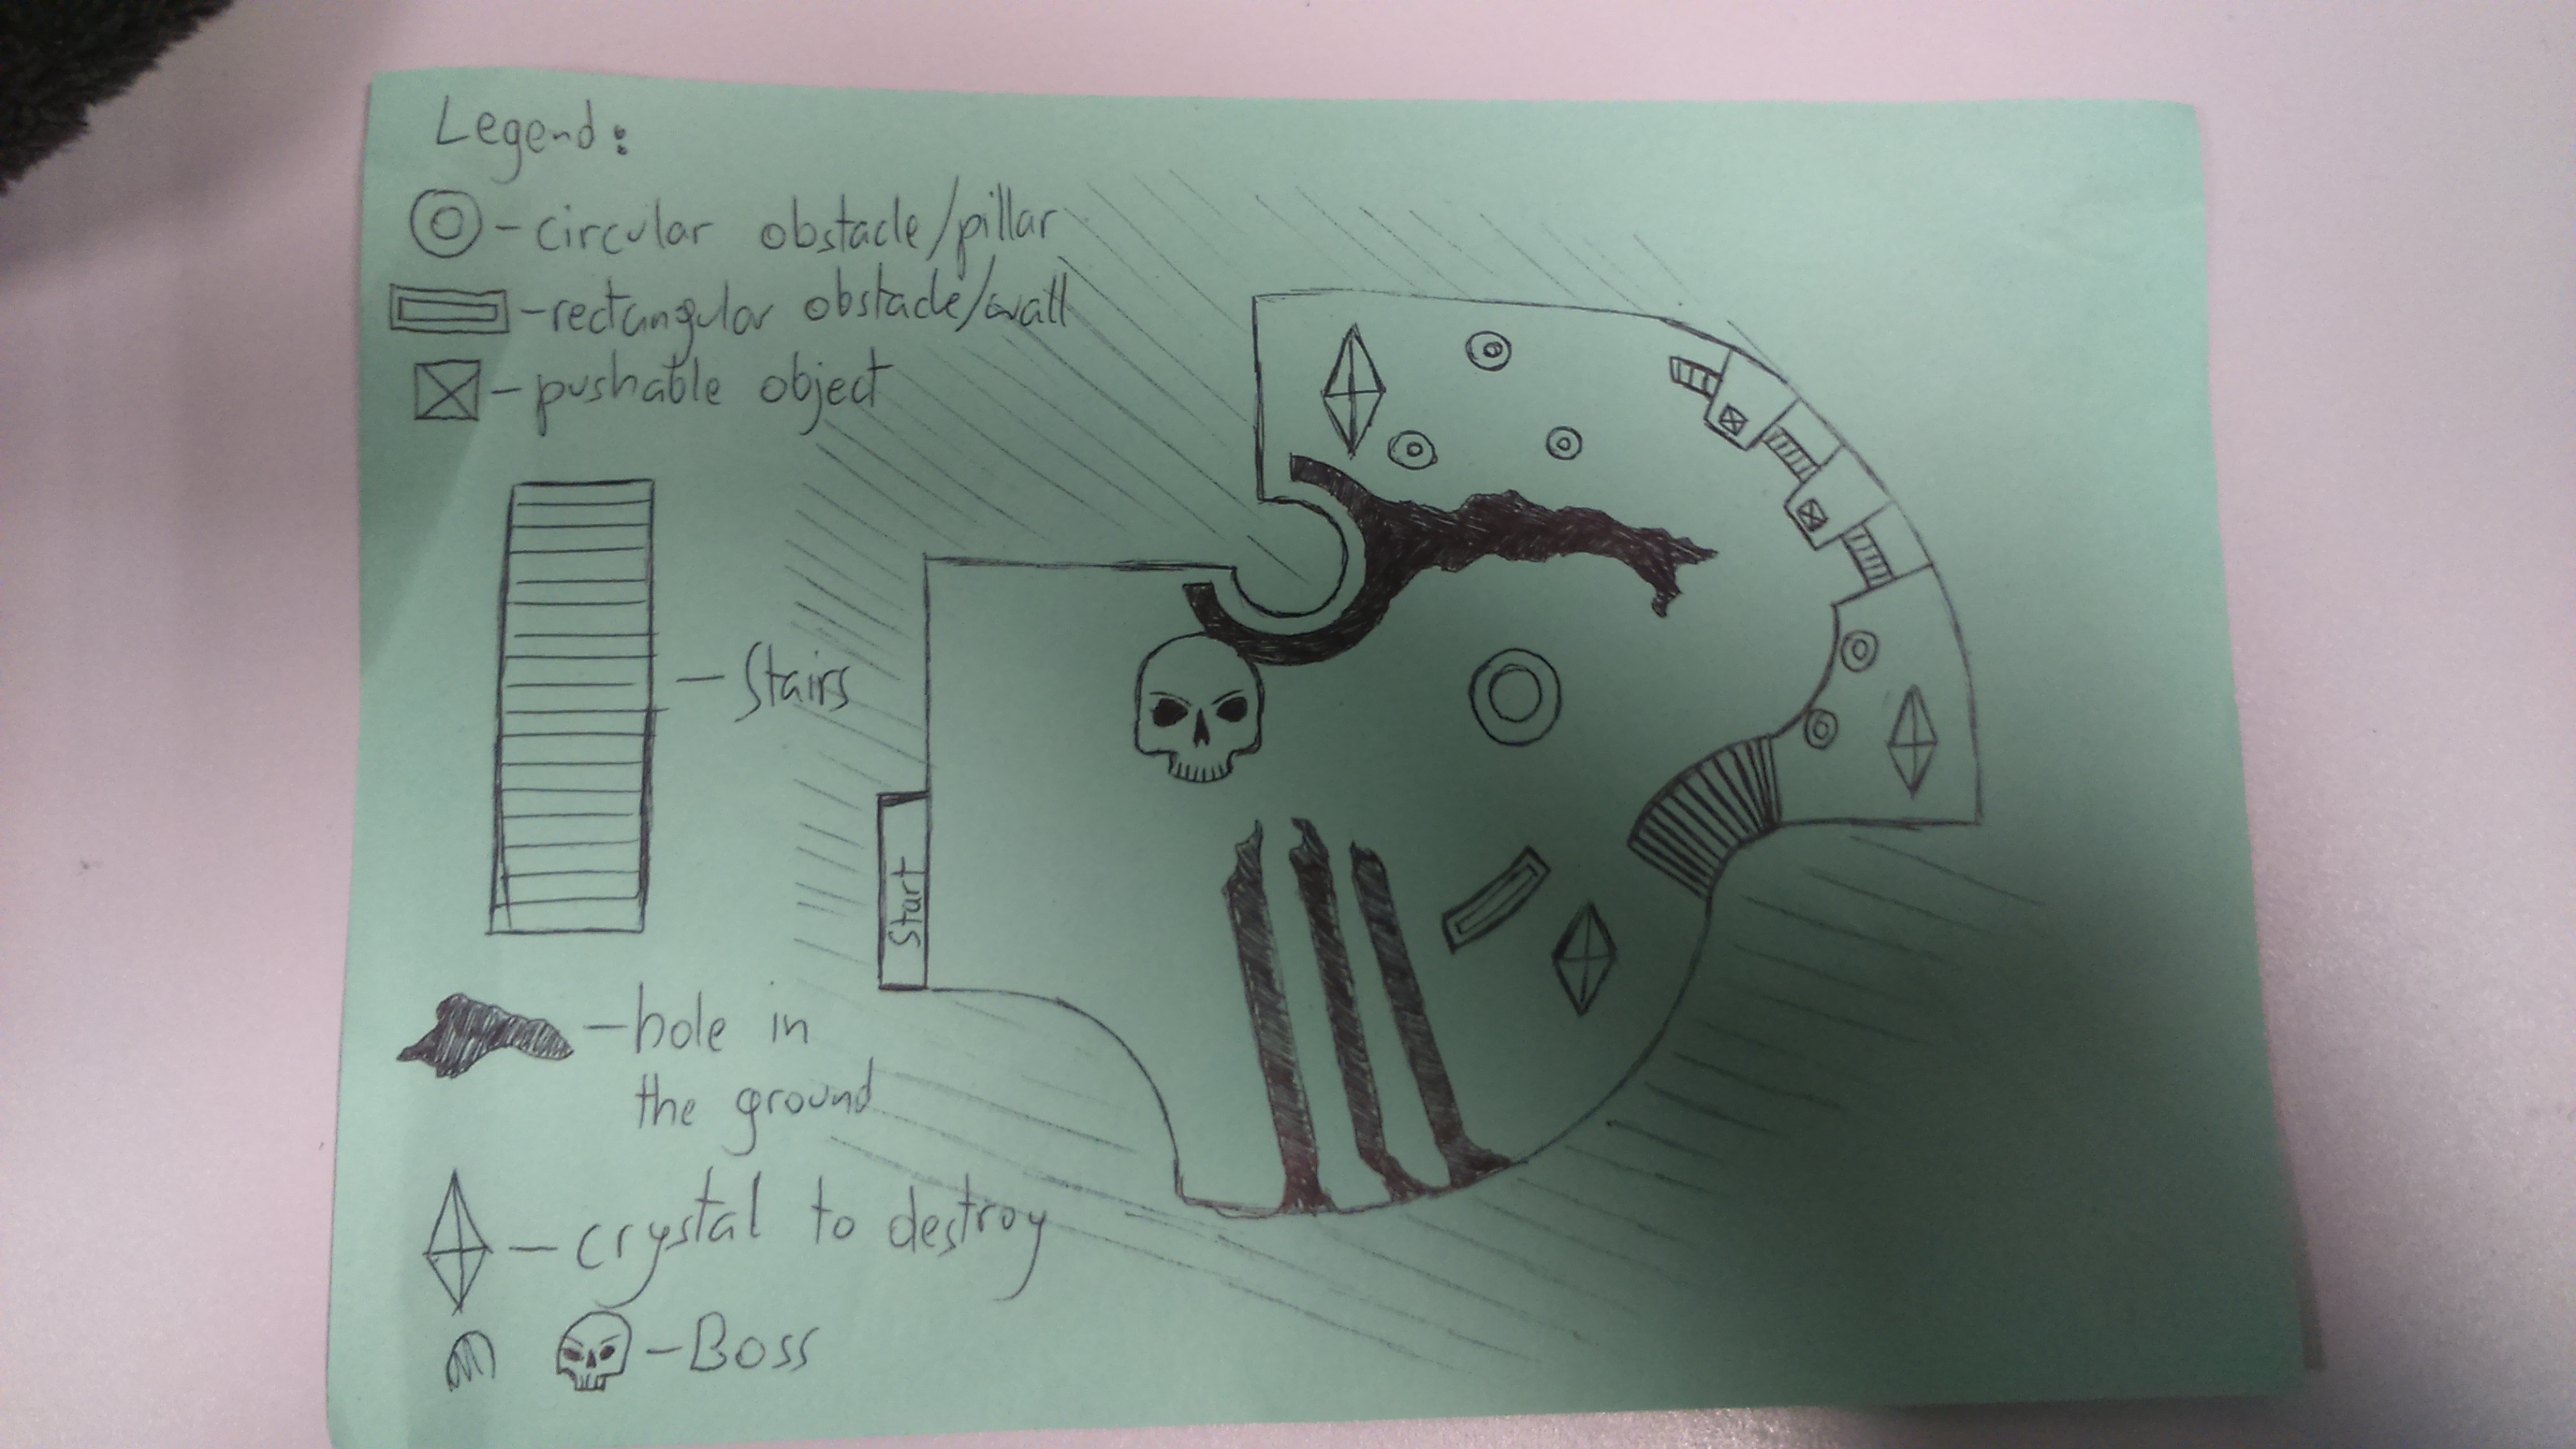 Legend:
- circular obstacle/pillar
- rectangular obstacle/wall
- pushable object
- Stairs
Start
- hole in
the ground
- crystal to destroy
- Boss